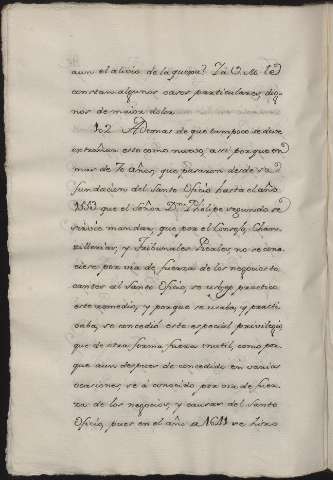 aun el alivio de la quexa. Ya O.M. le
constan algunos casos particulares dig-
nos de maior dolor.
102 Ademas de que tampoco se deve
extrañar esto como nuevo, assi porque en
mas de 70 años, que pasaron desde la
fundacion del Santo Oficio hasta el año
1553 que el señor Dn Phelipe segundo se
sirvió mandar, que por el Consejo, Chan-
zillerias, y Tribunales Reales, no se cono-
ciese por via de fuerza de los negocios to-
cantes al Santo Oficio, se usó, y practicó
este remedio, y porque se usaba, y practi-
caba, se concedió este especial privilegio,
que de otra forma fuera inutil, como por-
que aun despues de concedido en varias
ocasiones se á conocido por via de fuer-
za de los negocios, y causas del Santo
Oficio, pues en el año de 1641 se hizo